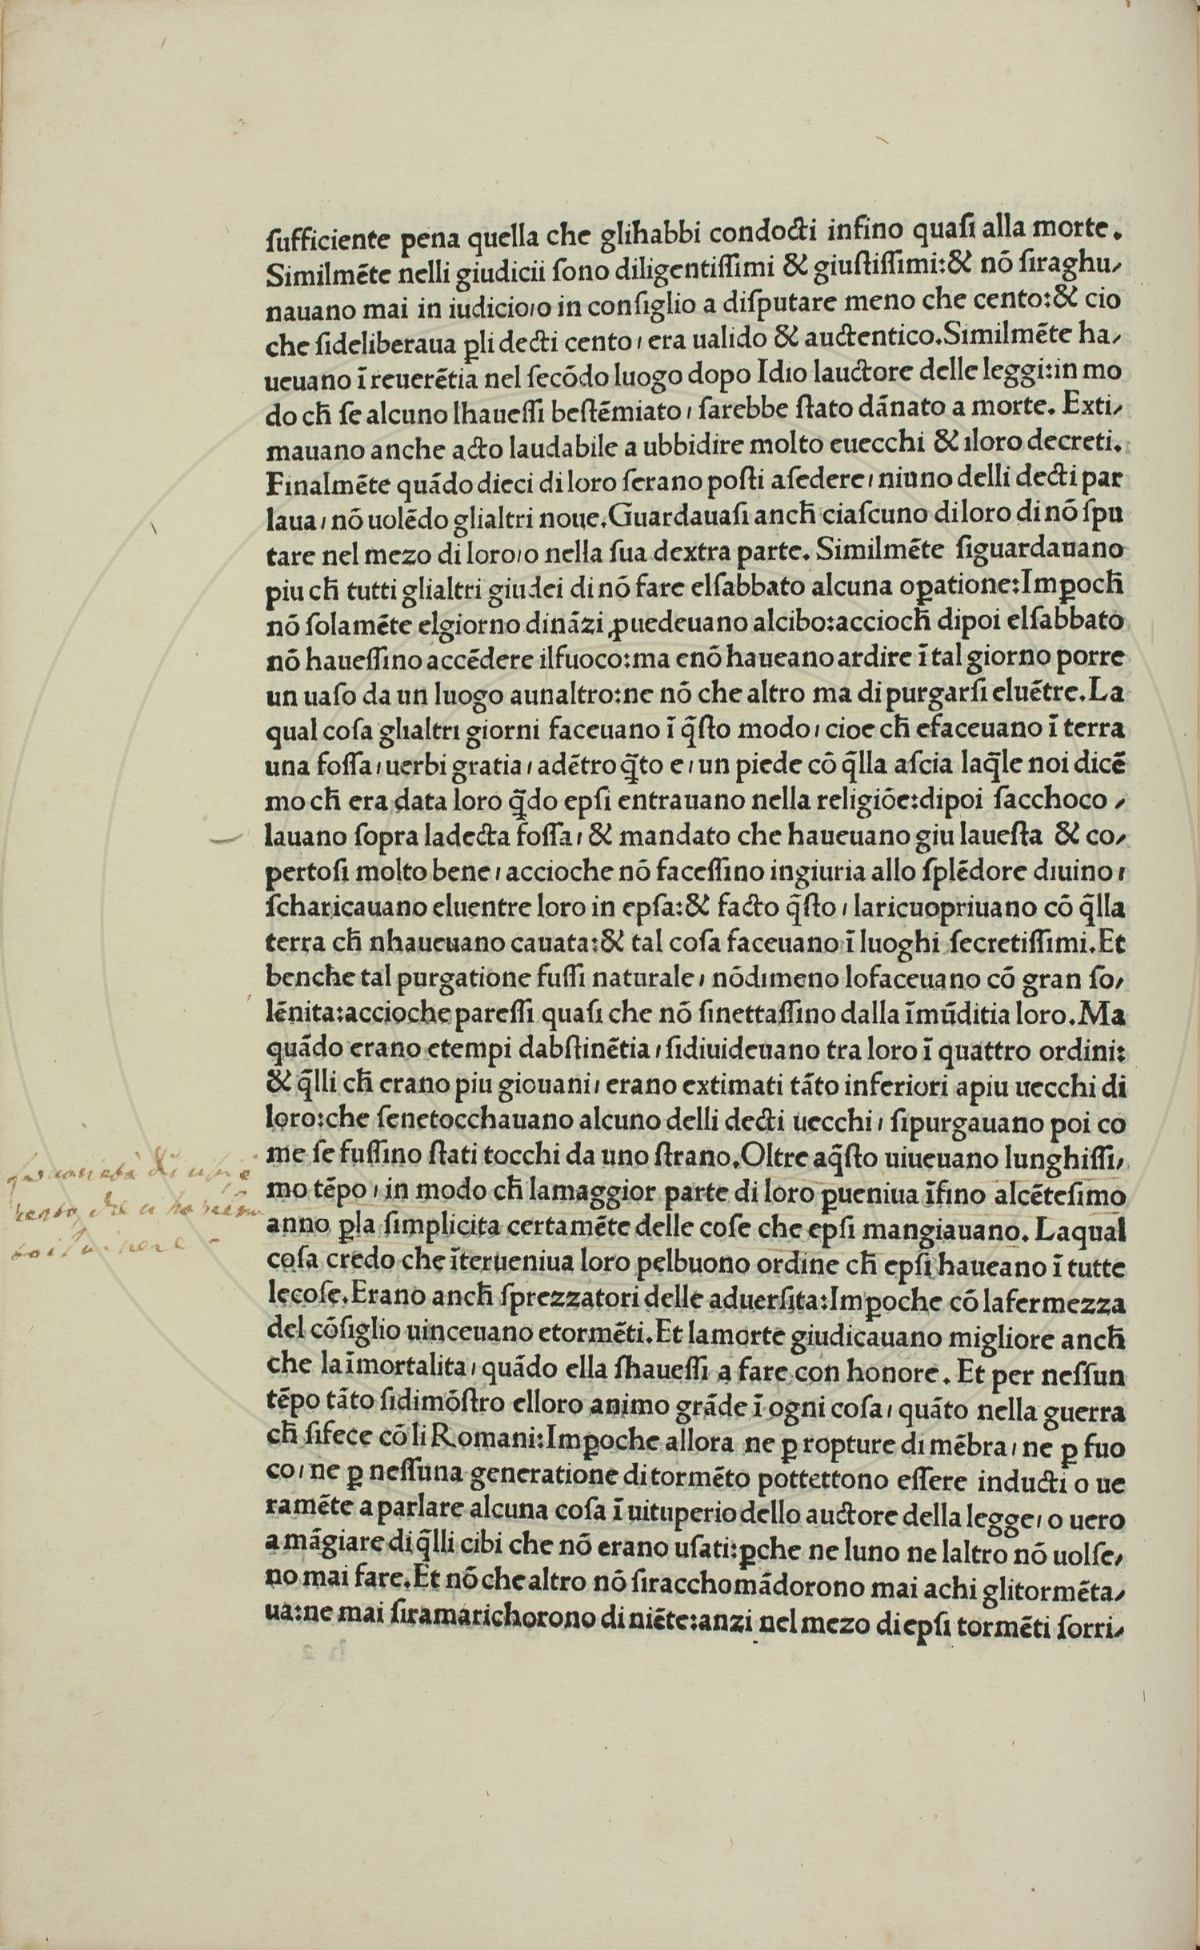 ſufficiente pena quella che glihabbi condocti infino quaſi alla morte.
Similmēte nelli giudicii ſono diligentiſſimi & giuſtiſſimi:& nō ſiraghu/
nauano mai in iudicio/o in conſiglio a diſputare meno che cento:& cio
che ſideliberaua ꝑli decti cento/era ualido & auctentico.Similmēte ha/
ueuano ī reuerētia nel ſecōdo luogo dopo Idio lauctore delle leggi:in mo
do cħ ſe alcuno lhaueſſi beſtēmiato/ſarebbe ſtato dānato a morte. Exti/
mauano anche acto laudabile a ubbidire molto euecchi & iloro decreti.
Finalmēte quādo dieci di loro ſerano poſti aſedere/niuno delli decti par
laua/nō uolēdo glialtri noue.Guardauaſi ancħ ciaſcuno diloro di nō ſpu
tare nel mezo di loro/o nella ſua dextra parte. Similmēte ſiguardauano
piu cħ tutti glialtri giudei di nō fare elſabbato alcuna oꝑatione:Imꝑocħ
nō ſolamēte elgiorno dināzi ꝓuedeuano alcibo:acciocħ dipoi elſabbato
nō haueſſino accēdere ilfuoco:ma enō haueano ardire ī tal giorno porre
un uaſo da un luogo aunaltro:ne nō che altro ma di purgarſi eluētre.La
qual coſa glialtri giorni faceuano ī q̄ſto modo/cioe cħ efaceuano ī terra
una foſſa/uerbi gratia/adētro q̄to e/un piede cō q̄lla aſcia laq̄le noi dicē
mo cħ era data loro q̄do epſi entrauano nella religiōe:dipoi ſacchoco/
lauano ſopra ladecta foſſa/& mandato che haueuano giu laueſta & co/
pertoſi molto bene/accioche nō faceſſino ingiuria allo ſplēdore diuino/
ſcharicauano eluentre loro in epſa:& facto q̄ſto/laricuopriuano cō q̄lla
terra cħ nhaueuano cauata:& tal coſa faceuano ī luoghi ſecretiſſimi.Et
benche tal purgatione fuſſi naturale/nōdimeno lofaceuano cō gran ſo/
lēnita:accioche pareſſi quaſi che nō ſinettaſſino dalla īmūditia loro.Ma
quādo erano etempi dabſtinētia/ſidiuideuano tra loro ī quattro ordini:
& q̄lli cħ erano piu giouani/erano extimati tāto inferiori apiu uecchi di
loro:che ſenetocchauano alcuno delli decti uecchi/ſipurgauano poi co
me ſe fuſſino ſtati tocchi da uno ſtrano.Oltre aq̄ſto uiueuano lunghiſſi/
mo tēpo/in modo cħ lamaggior parte di loro ꝑueniua īfino alcēteſimo
anno ꝑla ſimplicita certamēte delle coſe che epſi mangiauano. Laqual
coſa credo che īterueniua loro pelbuono ordine cħ epſi haueano ī tutte
lecoſe.Erano ancħ ſprezzatori delle aduerſita:Imꝑoche cō lafermezza
del cōſiglio uinceuano etormēti.Et lamorte giudicauano migliore ancħ
che laīmortalita/quādo ella ſhaueſſi a fare con honore. Et per neſſun
tēpo tāto ſidimōſtro elloro animo grāde ī ogni coſa/quāto nella guerra
cħ ſifece cō li Romani:Imꝑoche allora ne ꝑ ropture di mēbra/ne ꝑ fuo
co/ne ꝑ neſſuna generatione di tormēto pottettono eſſere inducti o ue
ramēte a parlare alcuna coſa ī uituperio dello auctore della legge/o uero
a māgiare di q̄lli cibi che nō erano uſati:ꝑche ne luno ne laltro nō uolſe/
no mai fare.Et nō che altro nō ſiracchomādorono mai achi glitormēta/
ua:ne mai ſiramarichorono di niēte:anzi nel mezo di epſi tormēti ſorri/